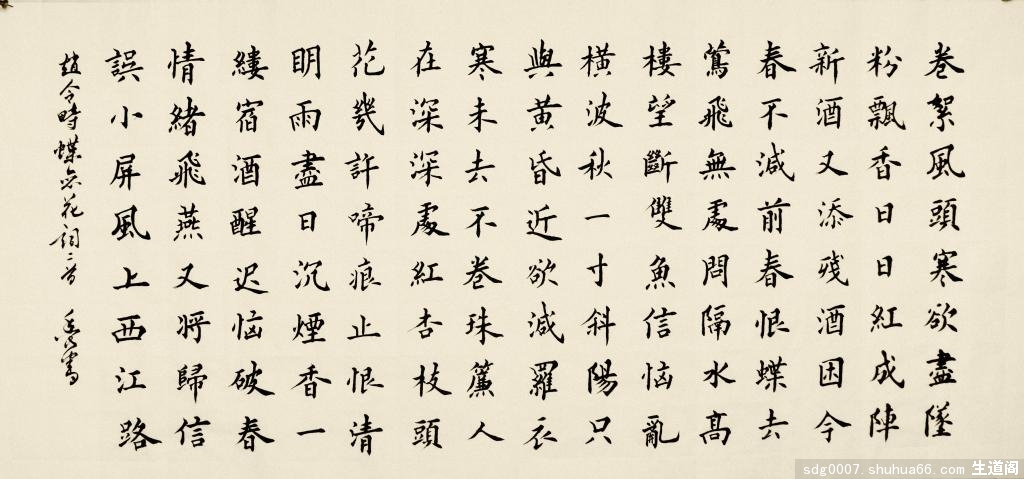 卷絮風頭寒欲盡墜
粉飄香日日紅成陣
新酒又添残酒困今
春不減前春恨蝶去
鶯飛無處問隔水高
樓望斷雙魚信恼亂
橫波秋一寸斜陽只
與黄昏近欲減羅衣
寒未去不卷珠簾人
在深深處紅杏枝頭
花幾許啼痕止恨清
明雨盡日沉煙香一
縷宿酒醒迟恼破春
情緒飛燕又將歸信
誤小屏風上西江路
趙令時蝶恋花詞二首 書
sdg0007.shuhua66.com 生道阁